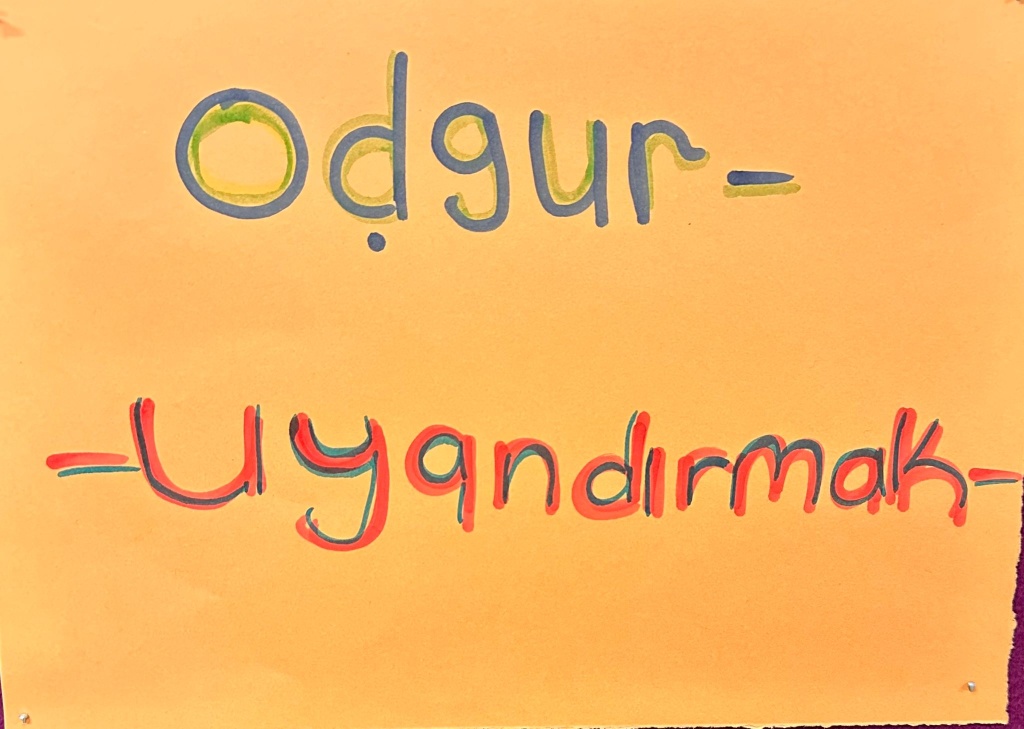 Oḍgur-
-Uyandırmak-